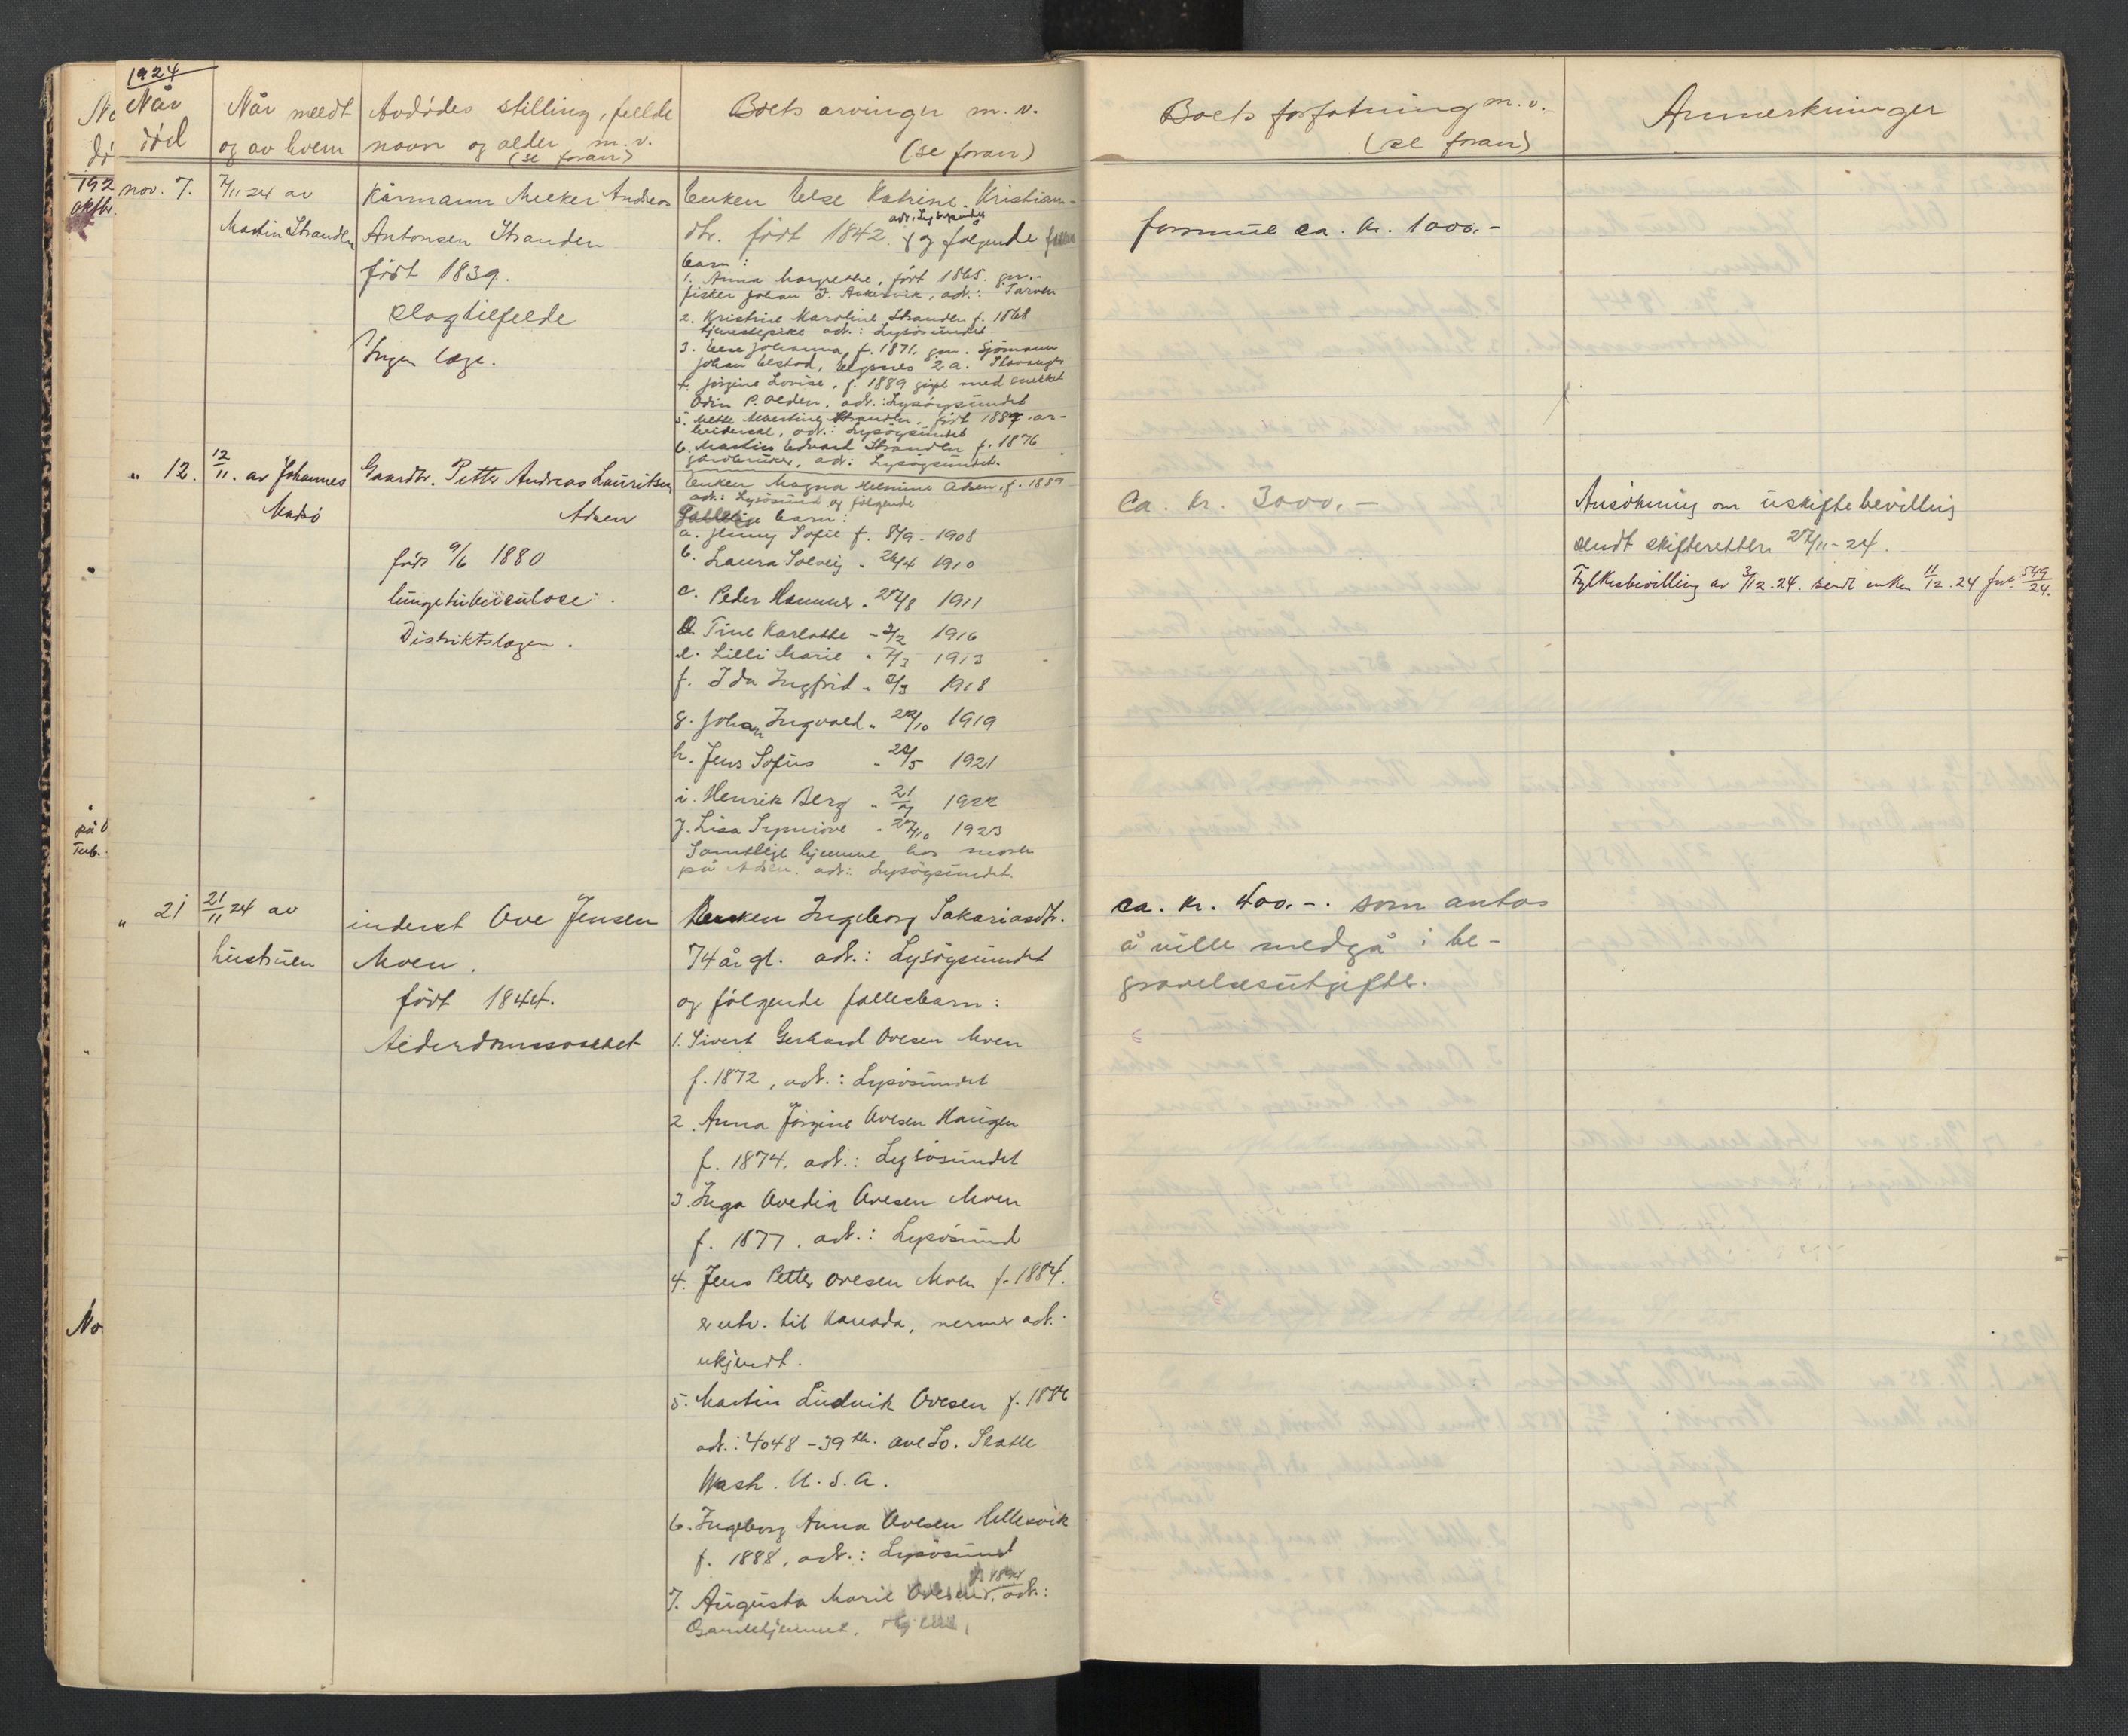 1924
Når
død
Når meldt
og av hvem
Avdødes stilling, fulde
navn og alder m. v.
(se foran)
Boets arvinger m. v.
(se foran)
Boets forfatning m. v.
(se foran)
Anmerkninger
192
oktbr.
nov. 7.
7/11 24 av
Martin Stranden
Kårmann Meeker Andreas
Antonsen Stranden
født 1839.
slagtilfelde
Ingen læge.
Enken Else Katrine Kristian-
dtr. født 1842. adr. Lysøysundet og følgende
barn:
1. Anna Margrethe, født 1865. gm.
fisker Johan J. adr.: Tarven
2. Kristine Karoline Stranden f. 1868
tjenestepike adr.: Lysøsundet
3. Else Johanna, f. 1871, gm. sjømann
Johan 2 a.
4. Jørgine Lovise, f. 1889 gift med snekker
Odin P. Olden, adr.: Lysøysundet
5. Mette Stranden, født 1887. ar-
beiderske, adr.: Lysøysundet
6. Martin Edvard Stranden f. 1876
gårdbruker, adr: Lysøysundet.
formue ca. kr. 1000.-
" 12.
12/11. av Johannes
Madsø
Gaardbr. Petter Andreas Lauritsen
Adsen
født 9/6 1880
lungetuberculose.
Distriktslægen.
Enken Magna Helmine Adsen. f. 1889
adr.: Lysøsund og følgende
barn:
a. Jenny Sofie f. 8/9. 1908
b. Laura Solveig " 26/4 1910
c. Peder Hammer " 27/8 1911
d. Tine Karlotte - 2/2 1916
e. Lilli Marie " 7/3 1913
f. Ida Ingfrid " 2/3 1918
g. Johan Ingvald " 22/10 1919
h. Jens Sofus " 28/5 1921
i. Henrik Berg " 21/7 1922
j. Lisa Synnøve " 27/10 1923
Samtlige hjemme hos moren
på Adsen. adr.: Lysøysundet.
Ca. kr. 3000.-
Ansökning om uskiftebevilling
sendt skifteretten 27/11-24.
Fylkesbevilling av 3/12.24. sendt enken 11/12.24 jnr. 549/24.
" 21
21/11 24 av
hustruen
inderst Ove Jensen
Moen.
født 1844.
Alderdomssvakhet
Enken Ingeborg Sakariasdtr.
74 år gl. adr.: Lysøysundet
og følgende fællesbarn:
1. Sivert Gerhard Ovesen Moen
f. 1872, adr.: Lysøsundet
2. Anna Jørgine Ovesen Haugen
f. 1874, adr.: Lysøsundet
3. Inga Ovedia Ovesen Moen
f. 1877, adr.: Lysøsund
4. Jens Petter Ovesen Moen f. 1884.
er utv. til Kanada, nermer adr.
ukjendt.
5. Martin Ludvik Ovesen f. 1886
adr.: 4048 - 39th. ave So. Seatle
Wash. U. S. A.
6. Ingeborg Anna Ovesen Hellesvik
f. 1888, adr.: Lysøsund
7. Augusta Marie Ovesen. adr.:
ca. kr. 400.-. som antas
å ville medgå i be-
gravelsesutgifter.
på
Tub.
No